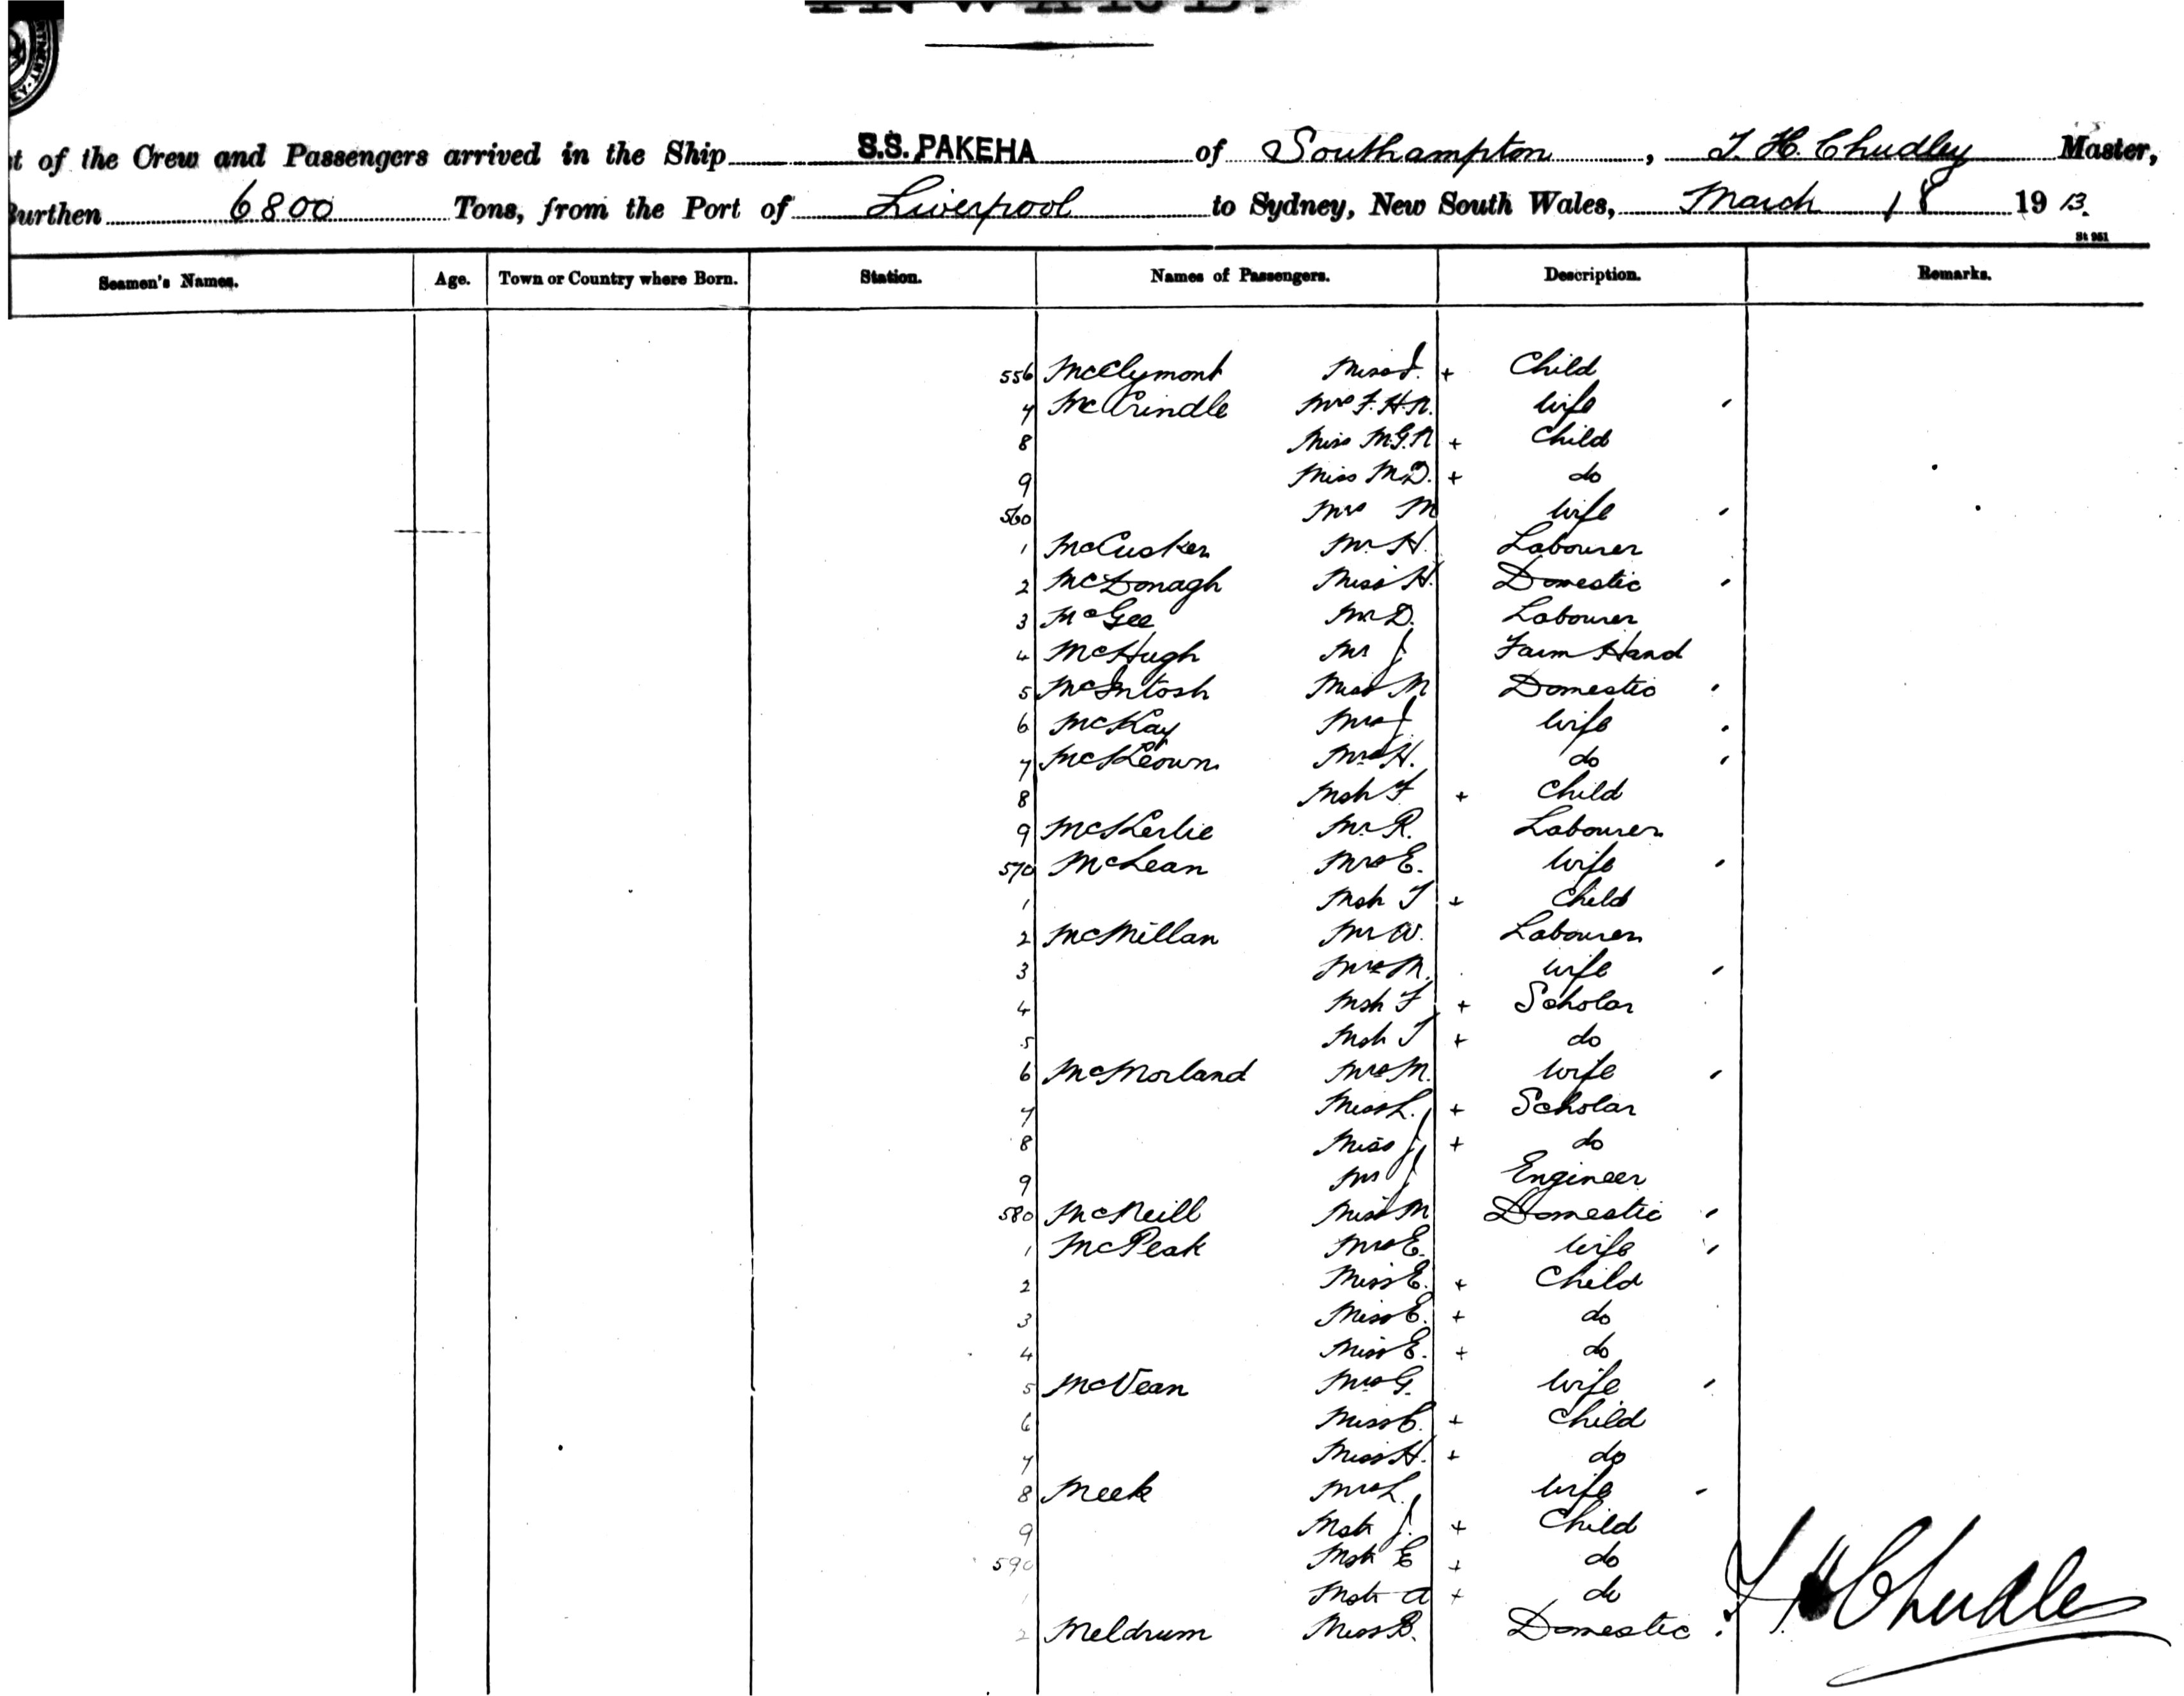 INWARD.
t of the Crew and Passengers arrived in the Ship S.S. PAKEHA of Southampton, J. H. Chudley Master,
Burthen 6800 Tons, from the Port of Liverpool to Sydney, New South Wales, March 18 1913.
St 951
Seamen's Names. Age. Town or Country where Born. Station. Names of Passengers. Description. Remarks.
556 McClymont Miss J. + Child
7 McCrindle Mrs F.H.N. Wife
8 Miss M.G.N + Child
9 Miss M.D. + do
560 Mrs M Wife
1 McCusker Mr H. Labourer
2 McDonagh Miss H. Domestic
3 McGee Mr D. Labourer
4 McHugh Mr J Farm Hand
5 McIntosh Miss M Domestic
6 McKay Mrs J Wife
7 McKeown Mrs H. do
8 Mstr F + Child
9 McKerlie Mr R. Labourer
570 McLean Mrs E. Wife
1 Mstr T + Child
2 McMillan Mr W. Labourer
3 Mrs M. Wife
4 Mstr F + Scholar
5 Mstr T + do
6 McMorland Mrs M. Wife
7 Miss L. + Scholar
8 Miss J + do
9 Mr J Engineer
580 McNeill Miss M Domestic
1 McPeak Mrs E. Wife
2 Miss E. + Child
3 Miss E. + do
4 Miss E. + do
5 McVean Mrs G. Wife
6 Miss C. + Child
7 Miss H. + do
8 Meek Mrs L. Wife
9 Mstr J. + Child
590 Mstr E + do
1 Mstr A + do
2 Meldrum Miss B. Domestic
Chudley